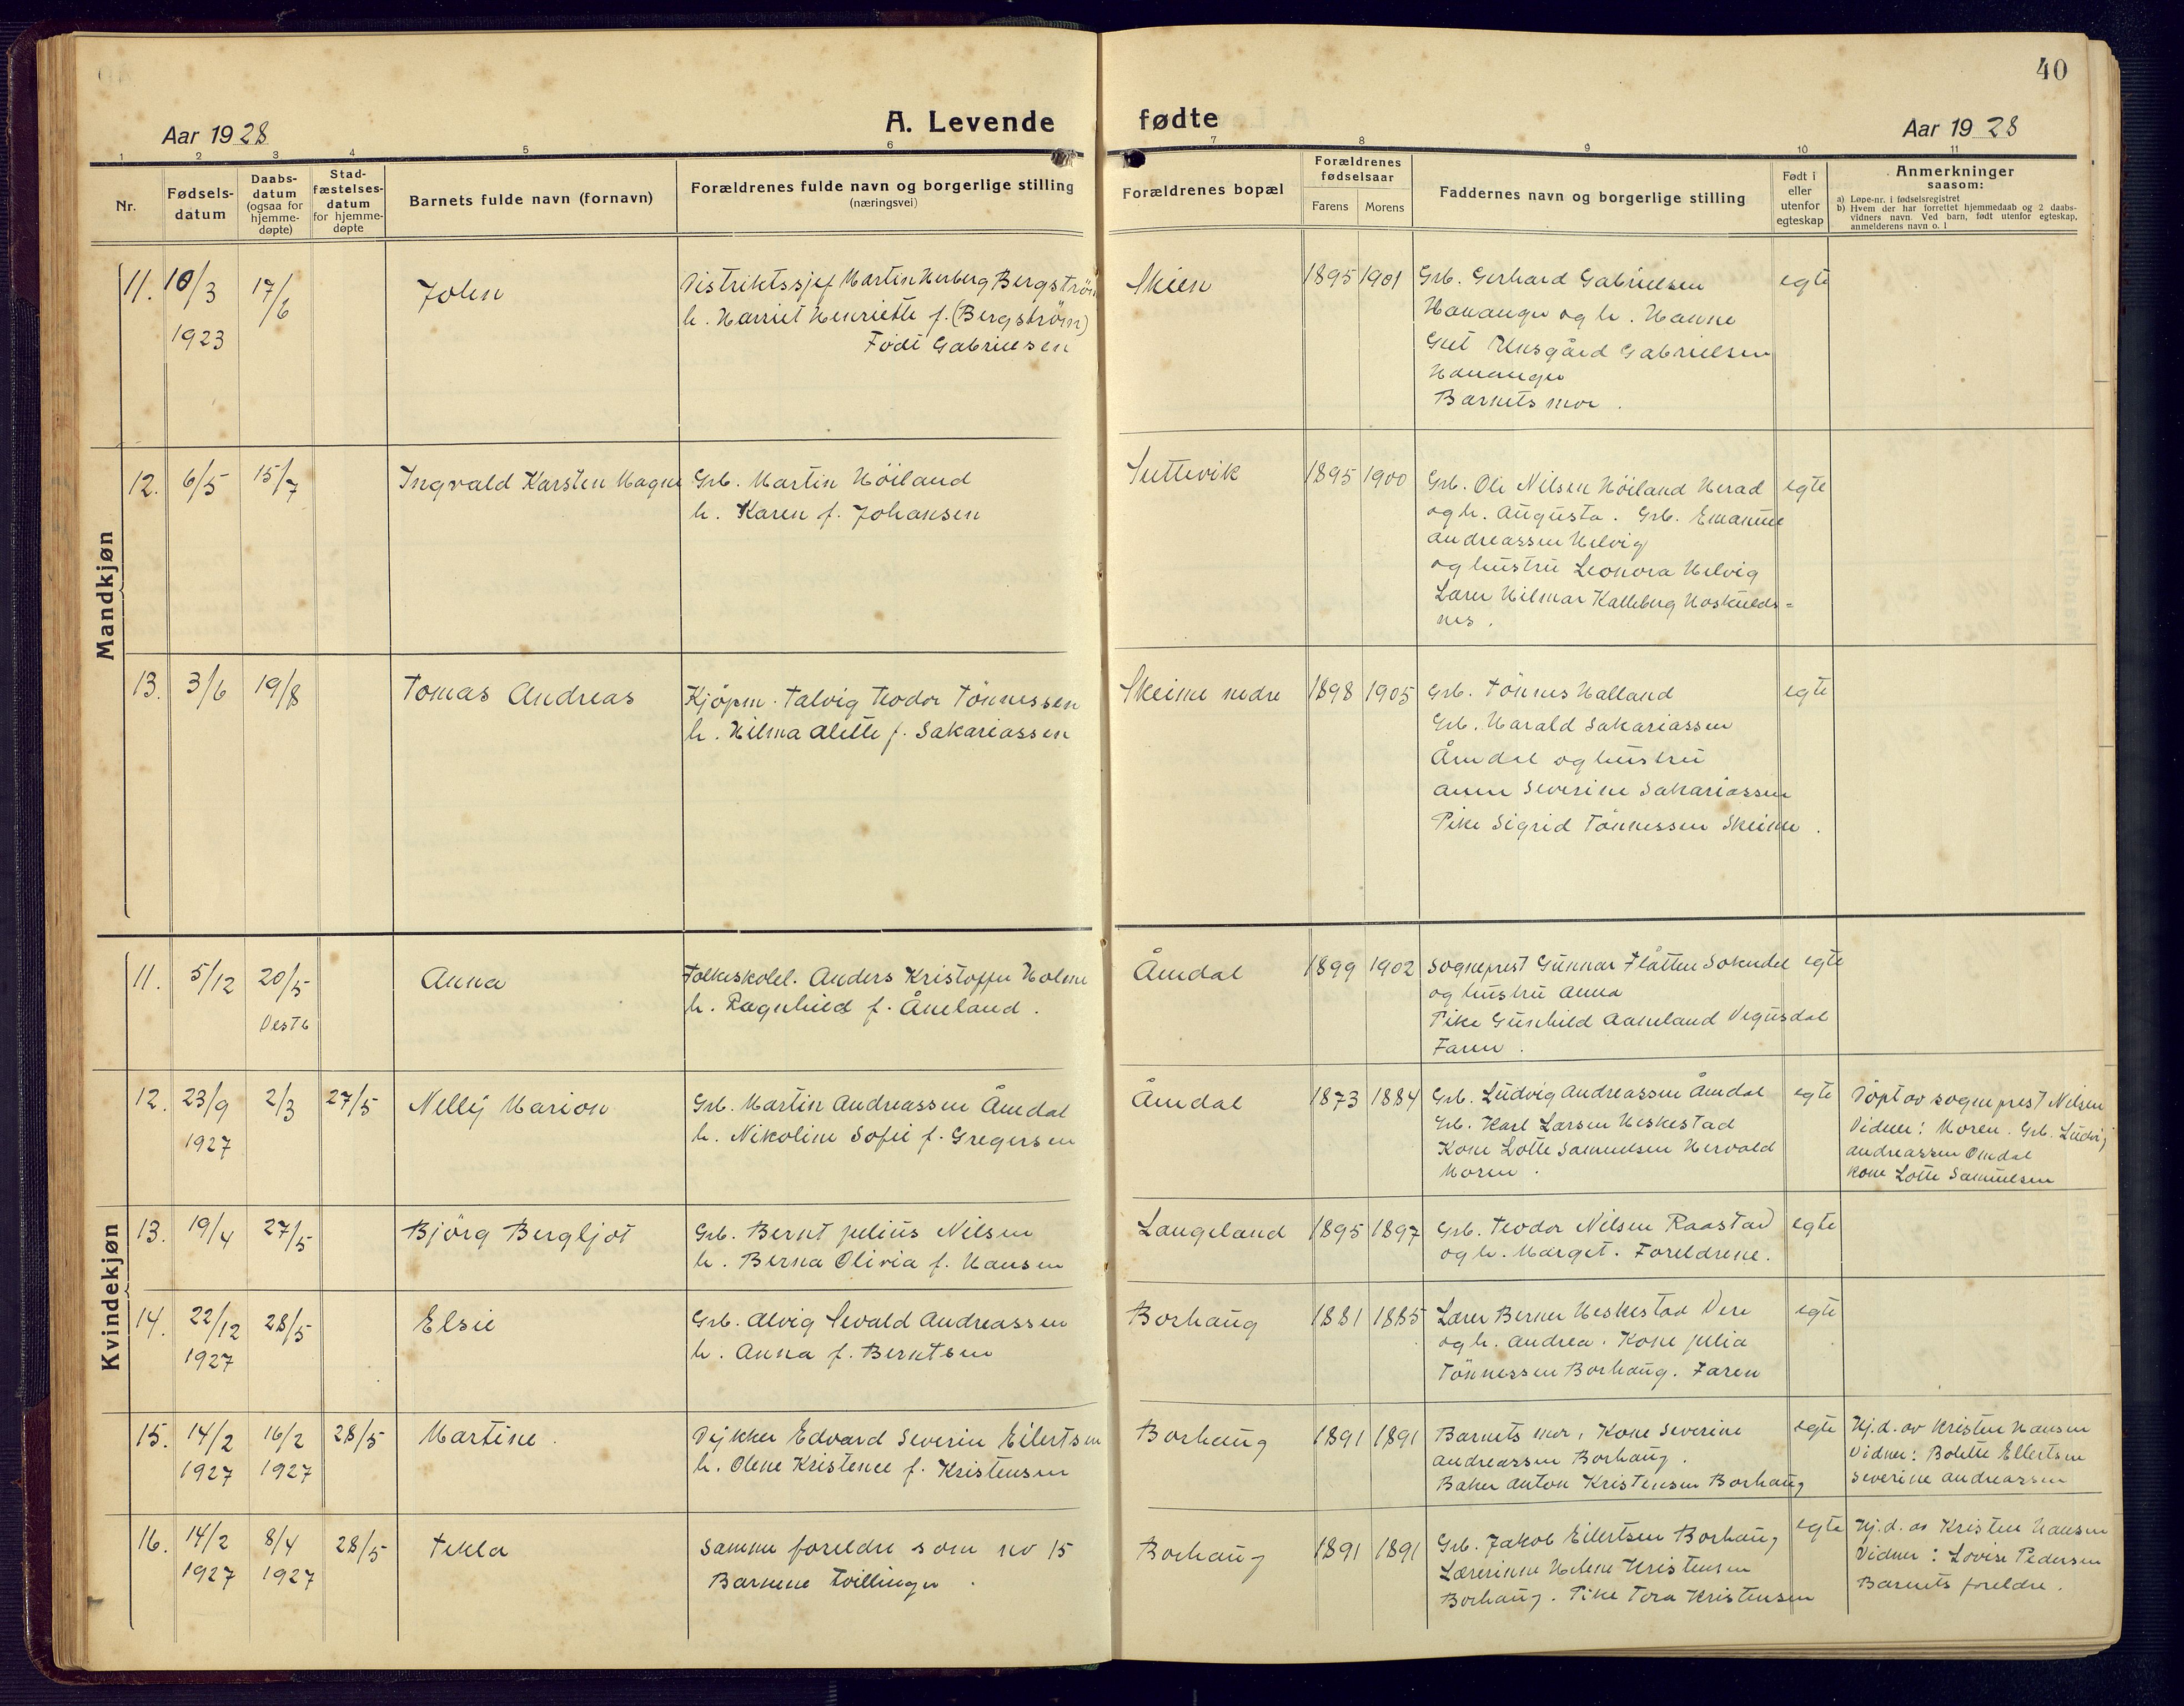 40
Aar 1928
A. Levende fødte
Aar 1928
1 2 3 4 5 6 7 8 9 10 11
Nr.
Fødsels-
datum
Daabs-
datum
(ogsaa for
hjemme-
døpte)
Stad-
fæstelses-
datum
for hjemme-
døpte
Barnets fulde navn (fornavn)
Forældrenes fulde navn og borgerlige stilling
(næringsvei)
Forældrenes bopæl
Forældrenes
fødselsaar
Farens Morens
Faddernes navn og borgerlige stilling
Født i
eller
utenfor
egteskap
Anmerkninger
saasom:
a) Løpe-nr. i fødselsregistret
b) Hvem der har forrettet hjemmedaab og 2 daabs-
vidners navn. Ved barn, født utenfor egteskap,
anmelderens navn o. l
Mandkjøn
11. 10/3
1923
17/6
John
Distriktssjef Martin Herberg Bergstrøm
h. Harriet Henriette f. (Bergstrøm)
Född Gabrielsen
Skien
1895 1901
Grb. Gerhard Gabrielsen
Hananger og h. Hanne
Gut Gabrielsen
Hananger
Barnets mor.
egte
12. 6/5 15/7
Ingvald Karsten Magne
Grb. Martin Höiland
h. Karen f. Johansen
1895 1900
Grb. Ole Nilsen Höiland Herad
og h. Augusta. Grb. Emanuel
Andreassen Helvig
og hustru Leonora Helvig
Lærer Hilmar Kalleberg Hoskulds=
nes.
egte
13. 3/6 19/8
Tomas Andreas
Kjöpm. Talvig Teodor Tönnessen
h. Hilma Alette f. Sakariassen
Skeime nedre
1898 1905
Grb. Tönnes Halland
Grb. Harald Sakariassen
Åmdal og hustru
Anne Severine Sakariassen
Pike Sigrid Tönnessen Skeime.
egte
Kvindekjøn
11. 5/12 20/5
Anna
Folkeskolel. Anders Kristoffer Holme
h. Ragnhild f. Åneland.
Åmdal
1899 1902
Sogneprest Gunnar Flåtten Sokndal
og hustru Anna
Pike Gunhild Aaneland Vegusdal
Faren.
egte
12. 23/9
1927
2/3 27/5
Nelly Marion
Grb. Martin Andreassen Åmdal
h. Nikoline Sofie f. Gregersen
Åmdal
1873 1884
Grb. Ludvig Andreassen Åmdal
Grb. Karl Larsen Heskestad
Kone Lotte Samuelsen Hervold
Moren.
egte
Döpt av sogneprest Nilsen
Vidner: Moren. Grb. Ludvig
Andreassen Omdal
Kone Lotte Samuelsen
13. 19/4 27/5
Björg Bergljot
Grb. Bernt Julius Nilsen
h. Berna Olivia f. Hansen
Langeland
1895 1897
Grb. Teodor Nilsen Raastad
og h. Marget. Foreldrene.
egte
14. 22/12
1927
28/5
Elsie
Grb. Alvig Sevald Andreassen
h. Anna f. Berntsen
Borhaug
1881 1885
Lærer Berner Heskestad Vere
og h. Andrea. Kone Julia
Tönnessen Borhaug. Faren
egte
15. 14/2
1927
16/2
1927
28/5
Martine.
Dykker Edvard Severin Eilertsen
h. Olene Kristence f. Kristensen
Borhaug
1891 1891
Barnets mor, Kone Severine
Andreassen Borhaug.
Baker Anton Kristensen Borhaug
egte
Hj.d. av Kristen Hansen
Vidner: Bolette Ellertsen
Severine Andreassen
16. 14/2
1927
8/4
1927
28/5
Tekla
Samme foreldre som nr 15
Barnene tvillinger.
Borhaug
1891 1891
Grb. Jakob Eilertsen Borhaug
Lærerinne Helene Kristensen
Borhaug. Pike Tora Kristensen
egte
Hj.d. av Kristen Hansen
Vidner: Lovise Pedersen
Barnets foreldre.